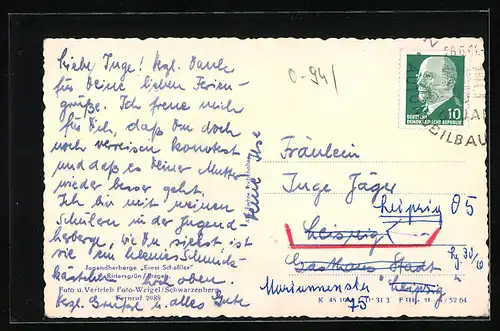 Liebe Inge! Hzl. Dank
für Deine lieben Ferien-
grüße. Ich freue mich
für Dich, daß Du doch
noch verreisen konntest
und daß es Deiner Mutter
wieder besser geht.
Ich bin mit meinen
Schülern in der Jugend-
herberge, wie Du siehst, ist
sie ein kleines Schmuck-
kästchen
hzl. Grüße u. alles Gute
Deine Ilse
Jugendherberge „Ernst Scheffler"
Rittersgrün/Erzgeb.
Foto u. Vertrieb Foto-Weigel/Schwarzenberg
Fernruf 2989
0-94/
10
DEUTSCHE
DEMOKRATISCHE REPUBLIK
BILBAU
Fräulein
Inge Jäger
Leipzig 05
Leipzig
Gasthaus Stadt
Leipzig
75